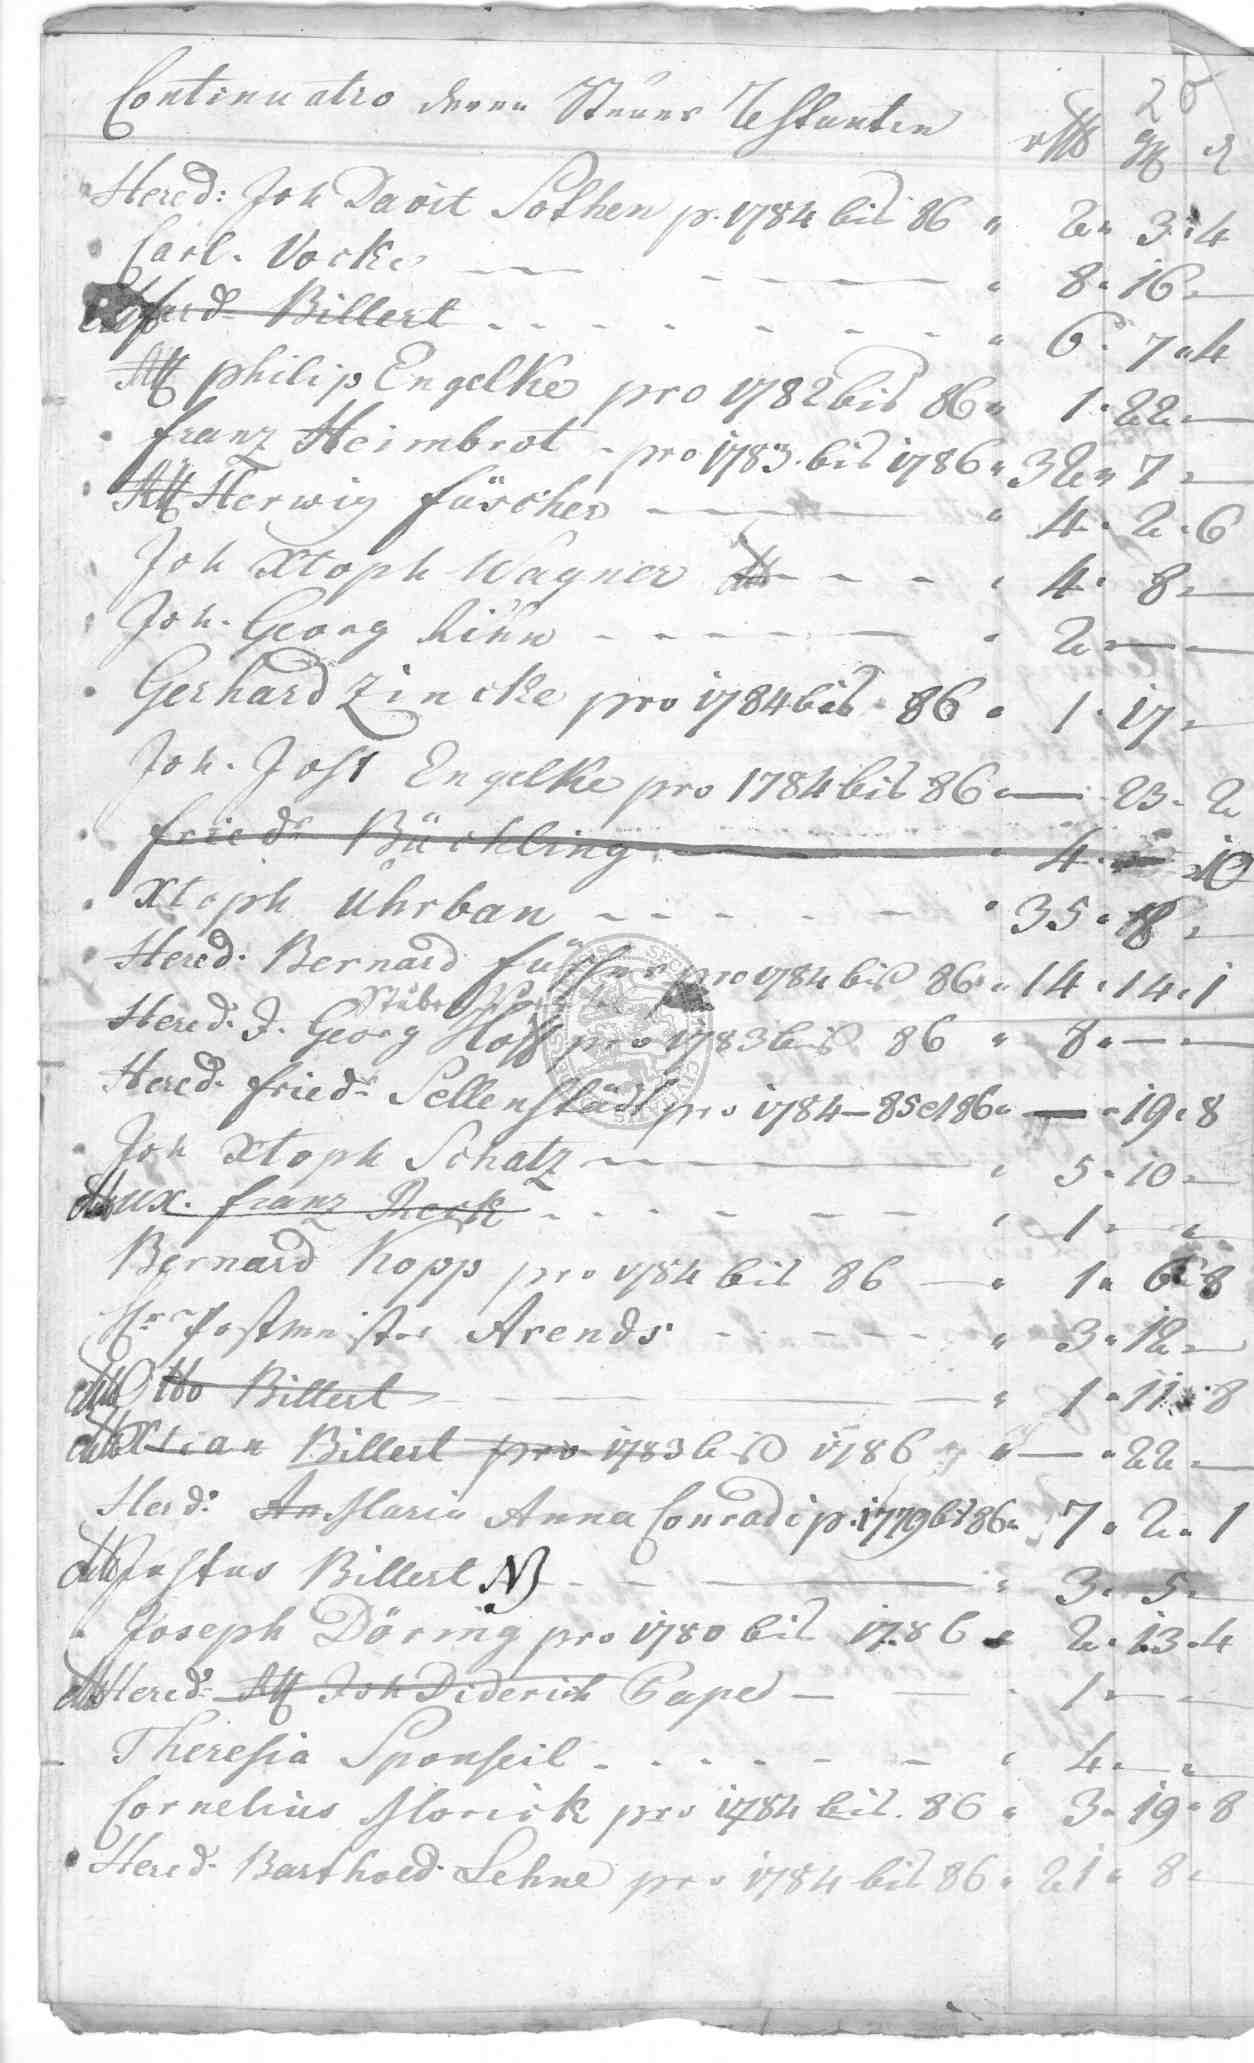 20
Continuatio derer Steuer Restanten rthl ggr d
Hered: Joh Davit Sothen p. 1784 bis 86 " 2 " 3 " 4
Carl. Vocke — — " 8 " 16 " —
Billert - - - - " 6 " 7 " 4
philip Engelke pro 1782 bis 86 " 1 " 22 " —
franz Heimbrot - pro 1783 bis 1786 " 32 " 7 " —
Herwig füscher — " 4 " 2 " 6
Joh Xtoph Wagner - - - " 4 " 8 " —
Joh. Georg - - - - " 2 " — " —
Gerhard Zincke pro 1784 bis 86 " 1 " 17 " —
Joh. Jost Engelke pro 1784 bis 86 " — " 23 " 2
friedr Büchling — " 4 " — " 10
Xtoph Uhrban - - - - " 35 " 18 " —
Hered. Bernard pro 1784 bis 86 " 14 " 14 " 1
Hered. J. Georg Hoff pro 1783 bis 86 " 8 " — " —
Hered. friedr Sellenstädt pro 1784 — 85 et 86 " — " 19 " 8
Joh Xtoph Schatz — " 5 " 10 " —
ux. franz - - - - " 1 " — " —
Bernard Kopp pro 1784 bis 86 — " 1 " 6 " 8
Hr Postmeister Arends - - - - " 3 " 12 " —
Otto Billert — " 1 " 11 " 8
Xtian Billert pro 1783 bis 1786 " — " 22 " —
Herd: An Maria Anna Conradi p. 1779 bis 86 " 7 " 2 " 1
Justus Billert NB - - — " 3 " 5 " —
Joseph Döring pro 1780 bis 1786 " 2 " 13 " 4
Hered: Joh Diderich Pape — — " 1 " — " —
Theresia Sponseil - - - - " 4 " — " —
Cornelius Morick pro 1784 bis 86 " 3 " 19 " 8
Hered. Barthold Lehne pro 1784 bis 86 " 21 " 8 " —